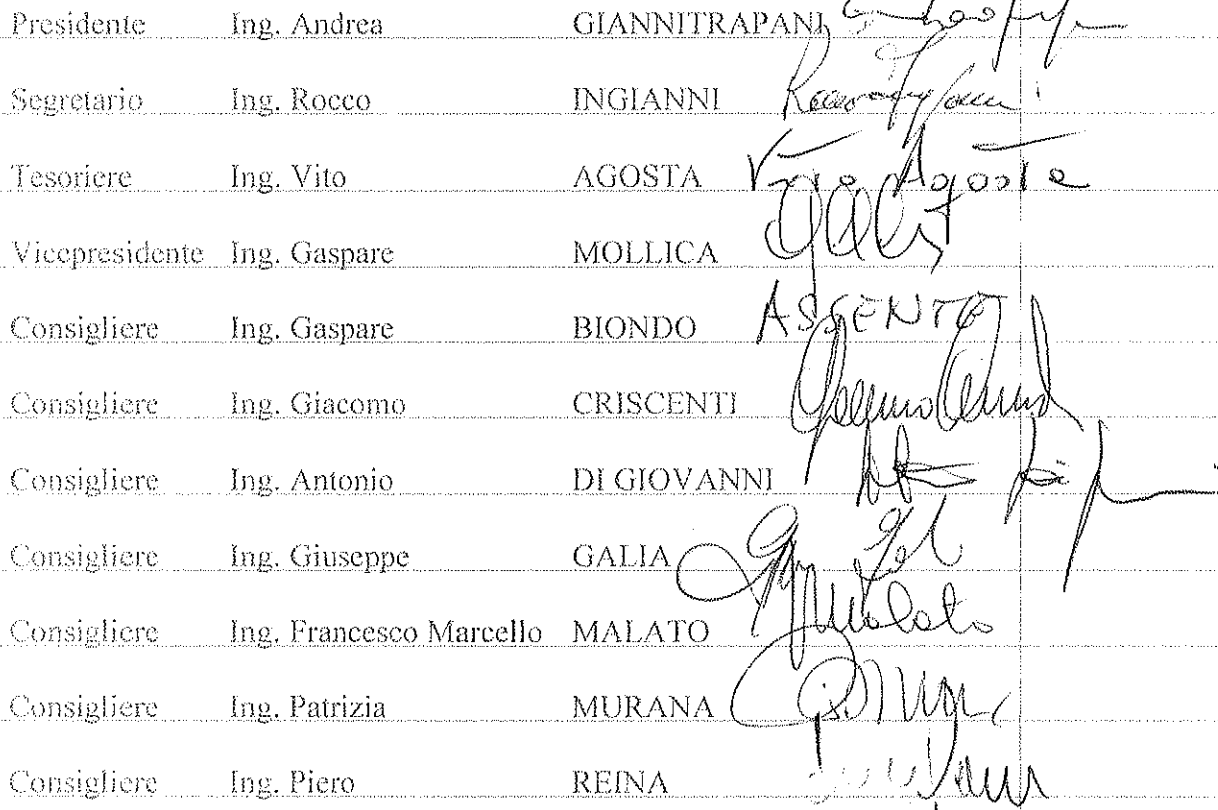 Presidente Ing. Andrea GIANNITRAPANI
Segretario Ing. Rocco INGIANNI
Tesoriere Ing. Vito AGOSTA Vito Agosta
Vicepresidente Ing. Gaspare MOLLICA
Consigliere Ing. Gaspare BIONDO ASSENTE
Consigliere Ing. Giacomo CRISCENTI
Consigliere Ing. Antonio DI GIOVANNI
Consigliere Ing. Giuseppe GALIA
Consigliere Ing. Francesco Marcello MALATO Malato
Consigliere Ing. Patrizia MURANA
Consigliere Ing. Piero REINA